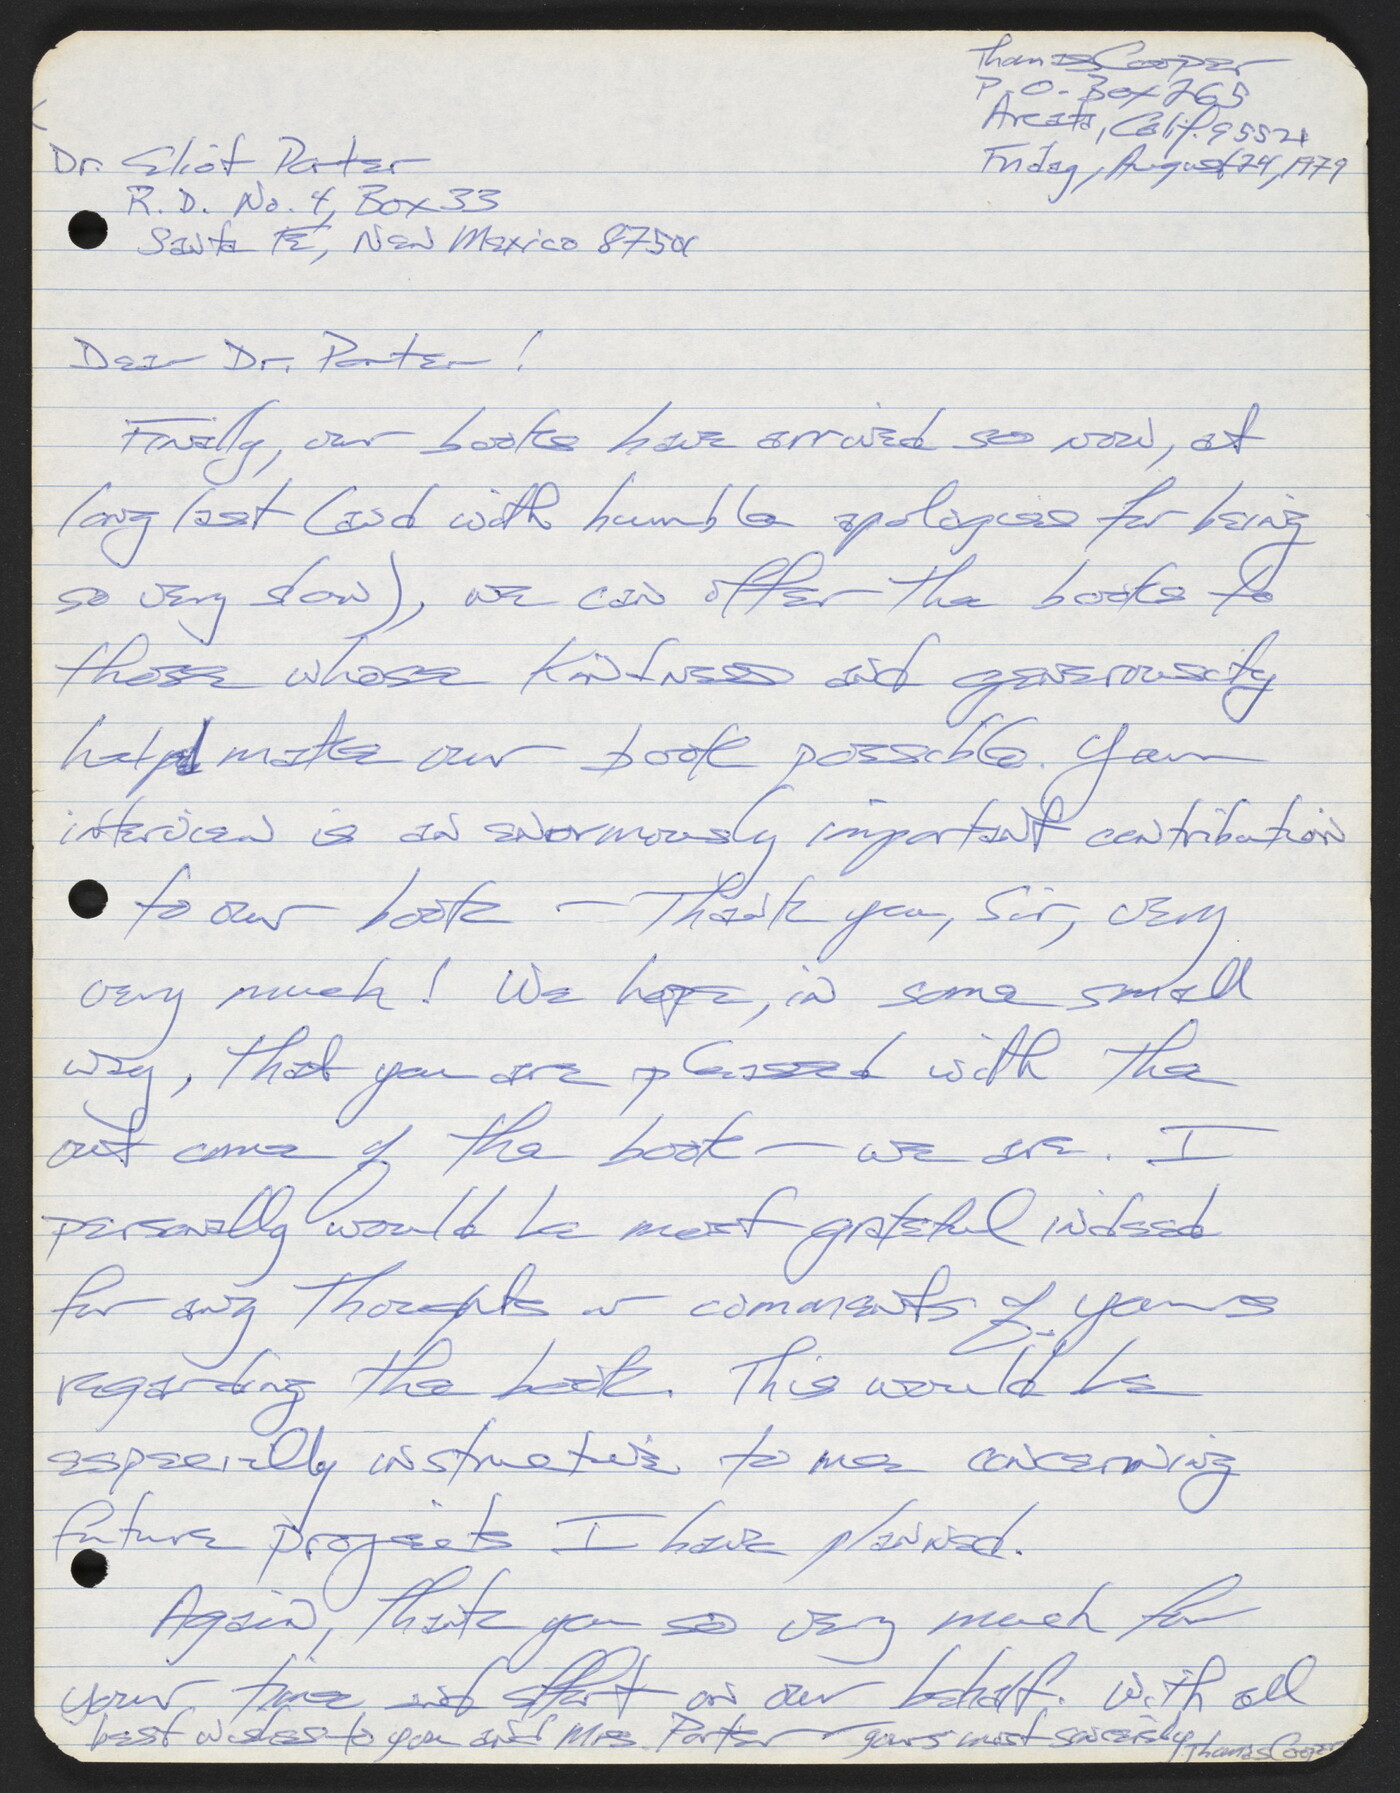 Thomas Cooper
P.O. Box 265
Arcata, Calif. 95521
Friday, August 24, 1979
Dr. Eliot Porter
R.D. No. 4, Box 33
Santa Fe, New Mexico 87501
Dear Dr. Porter!
Finally, our books have arrived so now, at
long last (and with humble apologies for being
so very slow), we can offer the books to
those whose kindness and generousity
help make our book possible. Your
interview is an enormously important contribution
to our book — Thank you, Sir, very
very much! We hope, in some small
way, that you are pleased with the
out come of the book — we are. I
personally would be most grateful indeed
for any thoughts or comments of yours
regarding the book. This would be
especially instructive to me concerning
future projects I have planned.
Again, thank you so very much for
your time and effort on our behalf. With all
best wishes to you and Mrs. Porter — yours most sincerely, Thomas Cooper